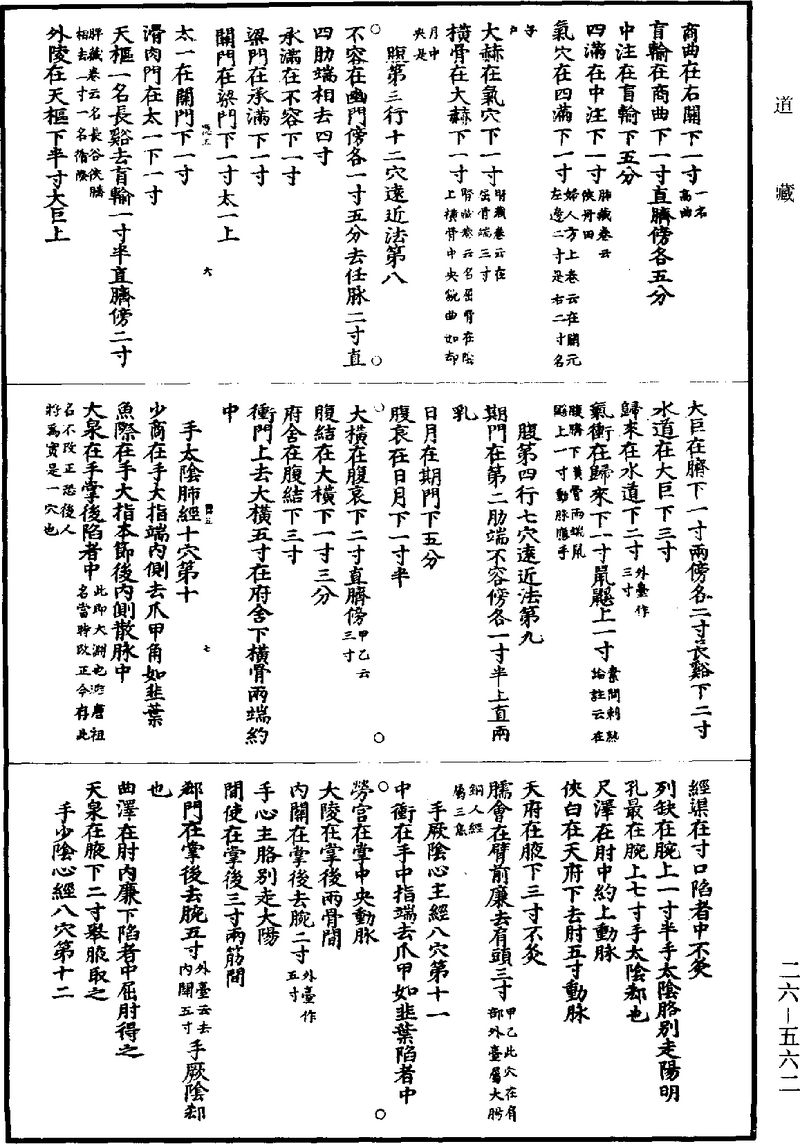 道藏
商曲在石關下一寸一名高曲
肓輸在商曲下一寸直臍傍各五分
中注在肓輸下五分
四滿在中注下一寸肺藏卷云俠丹田
氣穴在四滿下一寸婦人方上卷云在關元左邊二寸是右二寸名子戶
大赫在氣穴下一寸腎藏卷云在屈骨端三寸
橫骨在大赫下一寸腎藏卷云名屈骨在陰上橫骨中央宛曲如却月中央是
腹第三行十二穴遠近法第八
不容在幽門傍各一寸五分去任脉二寸直
四肋端相去四寸
承滿在不容下一寸
梁門在承滿下一寸
關門在梁門下一寸太一上
太一在關門下一寸
滑肉門在太一下一寸
天樞一名長谿去肓輸一寸半直臍傍二寸
肝藏卷云名長谷俠臍相去一寸一名循際
外陵在天樞下半寸大巨上
六
大巨在臍下一寸兩傍各二寸長谿下二寸
水道在大巨下三寸
歸來在水道下二寸外臺作三寸
氣衝在歸來下一寸鼠鼷上一寸素問刺熱論註云在腹臍下橫骨兩端鼠鼷上一寸動脉應手
腹第四行七穴遠近法第九
期門在第二肋端不容傍各一寸半上直兩
乳
日月在期門下五分
腹哀在日月下一寸半
大橫在腹哀下二寸直臍傍甲乙云三寸
腹結在大橫下一寸三分
府舍在腹結下三寸
衝門上去大橫五寸在府舍下橫骨兩端約
中
手太陰肺經十穴第十
七
少商在手大指端內側去爪甲角如韭葉
魚際在手大指本節後內側散脉中
大泉在手掌後陷者中此即大淵也避唐祖名當時改正今存此名不改正恐後人將為實是一穴也
經渠在寸口陷者中不灸
列缺在腕上一寸半手太陰胳別走陽明
孔最在腕上七寸手太陰郄也
尺澤在肘中約上動脉
俠白在天府下去肘五寸動脉
天府在腋下三寸不灸
臑會在臂前廉去肩頭三寸甲乙此穴在肩部外臺屬大腸銅人經屬三焦
手厥陰心主經八穴第十一
中衝在手中指端去爪甲如韭葉陷者中
勞宮在掌中央動脉
大陵在掌後兩骨間
內關在掌後去腕二寸外臺作五寸
手心主胳別走大陽
間使在掌後三寸兩筋間
郄門在掌後去腕五寸外臺云去內關五寸手厥陰郄
也
曲澤在肘內廉下陷者中屈肘得之
天泉在腋下二寸舉腋取之
手少陰心經八穴第十二
二六—五六二